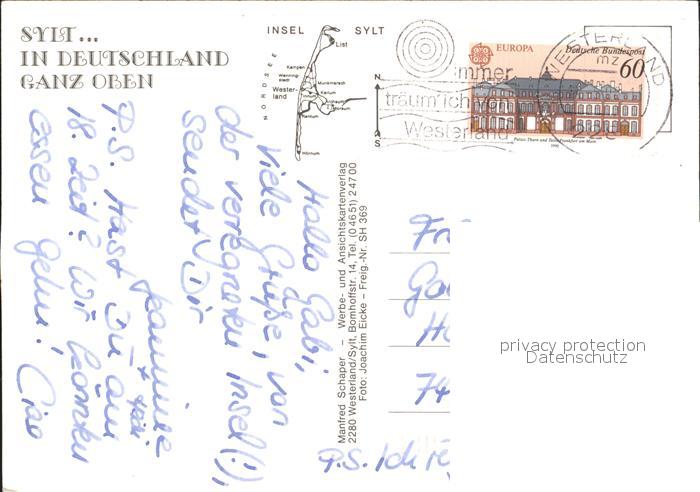 SYLT...
IN DEUTSCHLAND
GANZ OBEN
INSEL SYLT
NORDSEE
List
Kampen
Wenningstedt
Munkmarsch
Westerland
Keitum
Archsum
Morsum
Rantum
Hörnum
N
S
EUROPA
Deutsche Bundespost
60
Palais Thurn und Taxis Frankfurt am Main
1990
WESTERLAND
mz
immer
träum ich von
Westerland
Manfred Schaper – Werbe- und Ansichtskartenverlag
2280 Westerland/Sylt, Bomhoffstr. 14, Tel. (0 46 51) 2 47 00
Foto: Joachim Eicke – Freig.-Nr. SH 369
Hallo Gabi,
viele Grüße, von
der verregneten Insel(!),
sendet Dir
Jeannine
P.S. Hast Du am
18. Zeit? Wir könnten
essen gehn! Ciao
Fr
Ga
H
74
P.S. Ich
privacy protection
Datenschutz